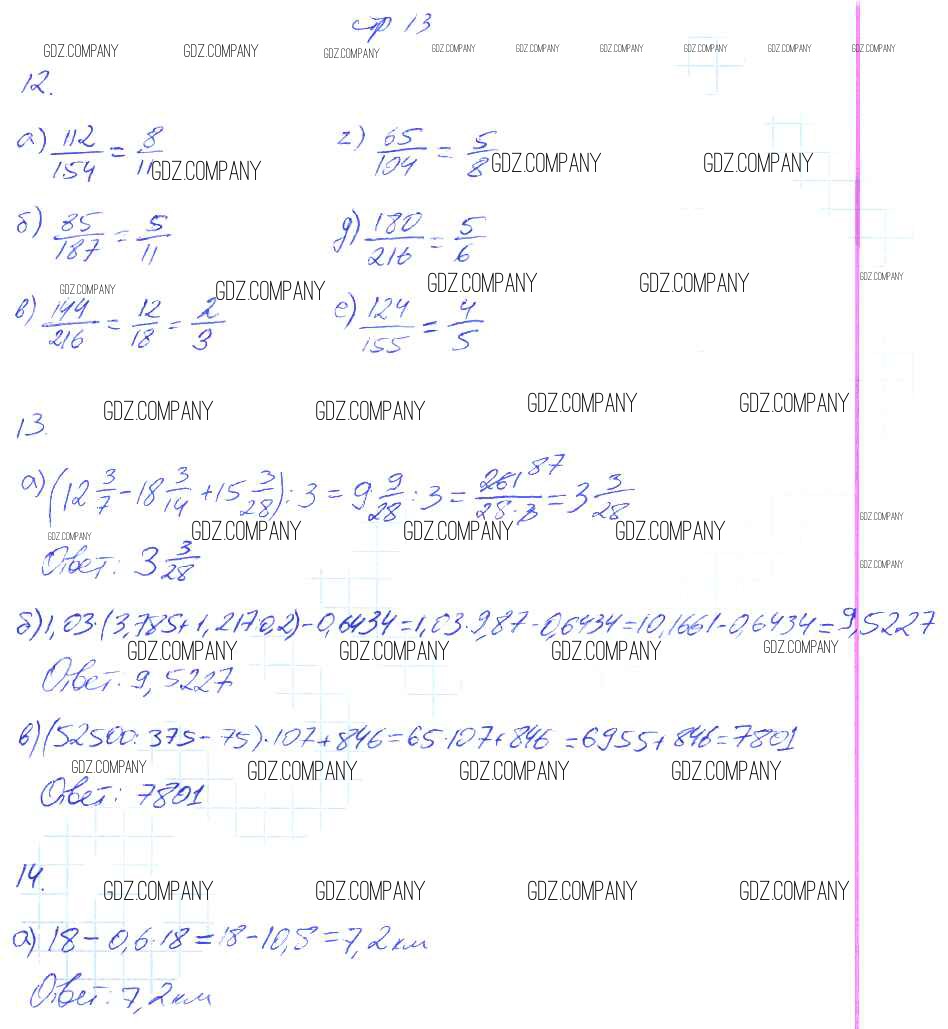 стр 13
GDZ.COMPANY GDZ.COMPANY GDZ.COMPANY GDZ.COMPANY GDZ.COMPANY GDZ.COMPANY GDZ.COMPANY GDZ.COMPANY GDZ.COMPANY
12.
а) 112/154 = 8/11 г) 65/104 = 5/8
GDZ.COMPANY GDZ.COMPANY GDZ.COMPANY
б) 85/187 = 5/11 д) 180/216 = 5/6
GDZ.COMPANY GDZ.COMPANY GDZ.COMPANY GDZ.COMPANY GDZ.COMPANY
в) 144/216 = 12/18 = 2/3 е) 124/155 = 4/5
GDZ.COMPANY GDZ.COMPANY GDZ.COMPANY GDZ.COMPANY
13.
а) (12 3/7 - 18 3/14 + 15 3/28) : 3 = 9 9/28 : 3 = 261 87/28·3 = 3 3/28
GDZ.COMPANY GDZ.COMPANY GDZ.COMPANY GDZ.COMPANY GDZ.COMPANY
Ответ: 3 3/28
GDZ.COMPANY
б) 1,03·(3,785+1,217:0,2)-0,6434=1,03·9,87-0,6434=10,1661-0,6434=9,5227
GDZ.COMPANY GDZ.COMPANY GDZ.COMPANY GDZ.COMPANY
Ответ: 9,5227
в) (52500:375-75)·107+846=65·107+846=6955+846=7801
GDZ.COMPANY GDZ.COMPANY GDZ.COMPANY GDZ.COMPANY
Ответ: 7801
14.
GDZ.COMPANY GDZ.COMPANY GDZ.COMPANY GDZ.COMPANY
а) 18-0,6·18=18-10,8=7,2 км
Ответ: 7,2 км